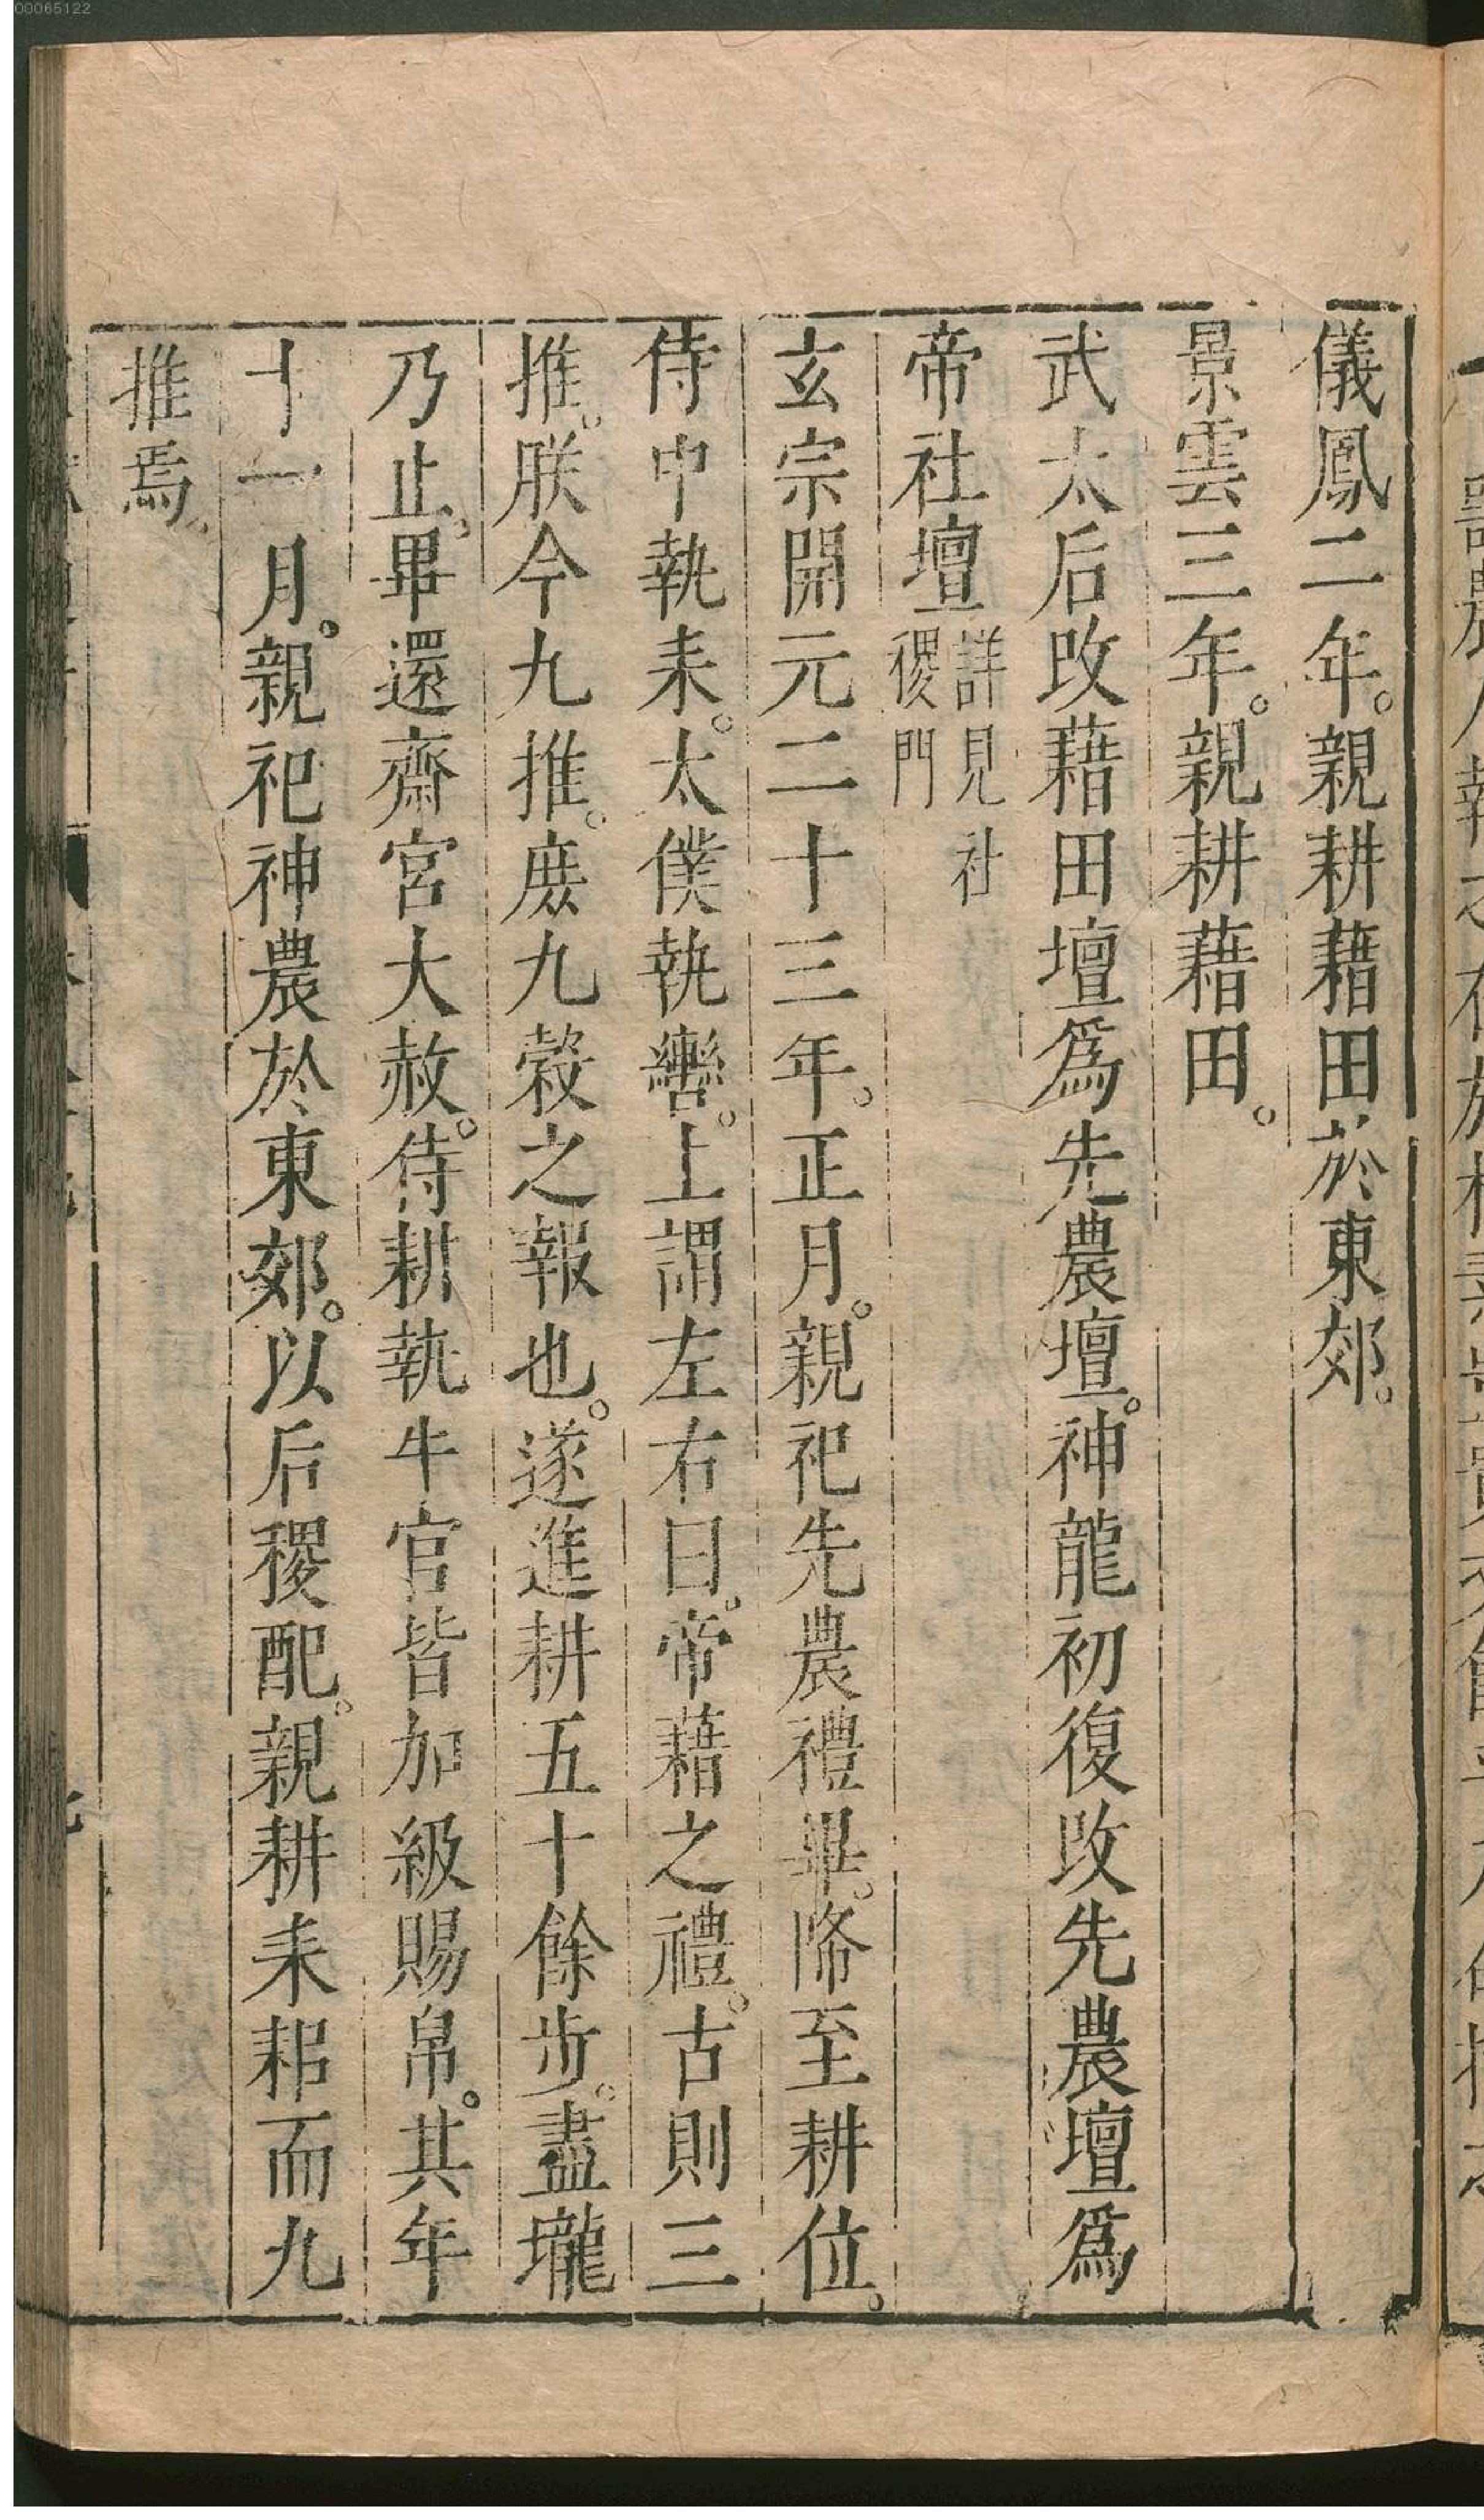 儀鳳二年。親耕藉田於東郊。
景雲三年。親耕藉田。
武太后改藉田壇爲先農壇。神龍初復改先農壇爲
帝社壇詳見社稷門
玄宗開元二十三年。正月。親祀先農禮畢。降至耕位。
侍中執耒。太僕執轡。上謂左右曰。帝藉之禮。古則三
推。朕今九推。庶九穀之報也。遂進耕五十餘步。盡壠
乃止。畢還齋宮大赦。侍耕執牛官皆加級賜帛。其年
十一月。親祀神農於東郊。以后稷配。親耕耒耜而九
推焉。
00065122